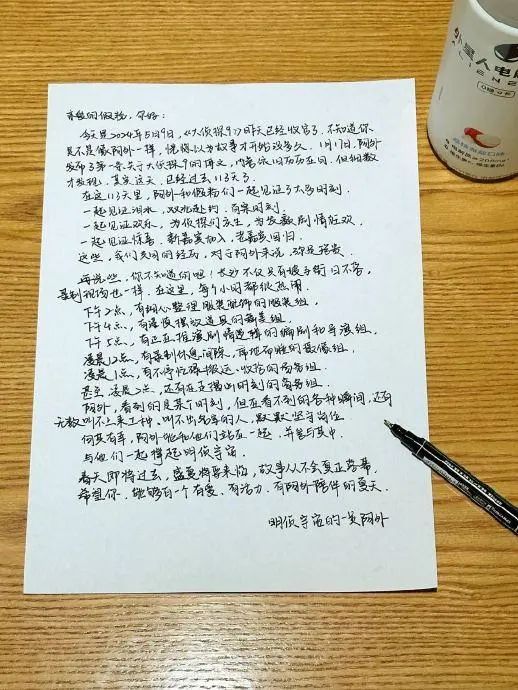 亲爱的假粉，你好：
今天是2024年5月9日，《大侦探9》昨天已经收官了，不知道你
是不是像阿外一样，恍惚以为故事才开始没多久，1月17日，阿外
发布了第一条关于大侦探9的博文，内容依旧历历在目，但细数
才发现，其实这天，已经过去113天了。
在这113天里，阿外和假粉们一起见证了太多时刻
一起见证泪水，双北赴约，告案时刻
一起见证欢乐，为侦探们庆生，为发散剧情狂欢
一起见证惊喜，新嘉宾加入，老嘉宾回归
这些，我们共同的经历，对于阿外来说，弥足珍贵
再说些，你不知道的吧！长沙不仅只有坡子街日不落，
录制现场也一样，在这里，每个小时都很热闹
下午2点，有细心整理服装配饰的服装组，
下午4点，有谨慎摆放道具的舞美组，
下午5点，有正在推演剧情逻辑的编剧和导演组，
凌晨12点，有录制休息间隙，席地而睡的摄像组，
凌晨1点，有不停忙碌搬运、收拾的商务组，
甚至凌晨2点，还有在
阿外，看到的是某个时刻，但在看不到的各种瞬间，还有
无数叫不上来工种，叫不出名字的人，默默坚守岗位
何其有幸，阿外能和他们站在一起，并参与其中。
与他们一起撑起明侦宇宙。
春天即将过去，盛夏将要来临，故事从不会真正落幕
希望你，能够有一个有爱、有活力、有阿外陪伴的夏天。
明侦宇宙的一员阿外
外星人电
ALIENE
0糖